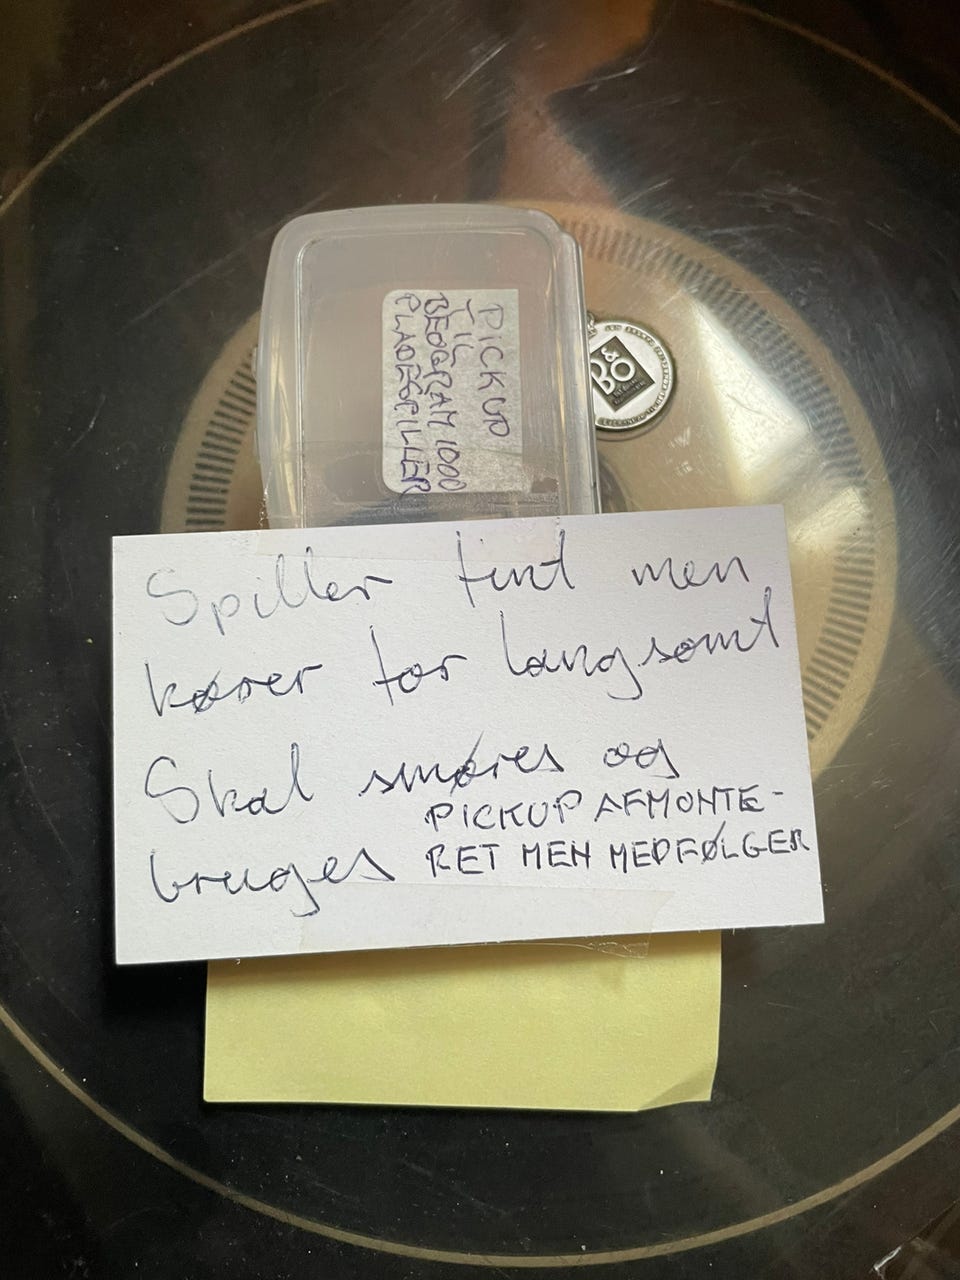 PICKUP
TIL
BEOGRAM 1000
PLADESPILLER
B&O
Spiller fint men
kører for langsomt
Skal smøres og
bruges
PICKUP AFMONTE-
RET MEN MEDFØLGER